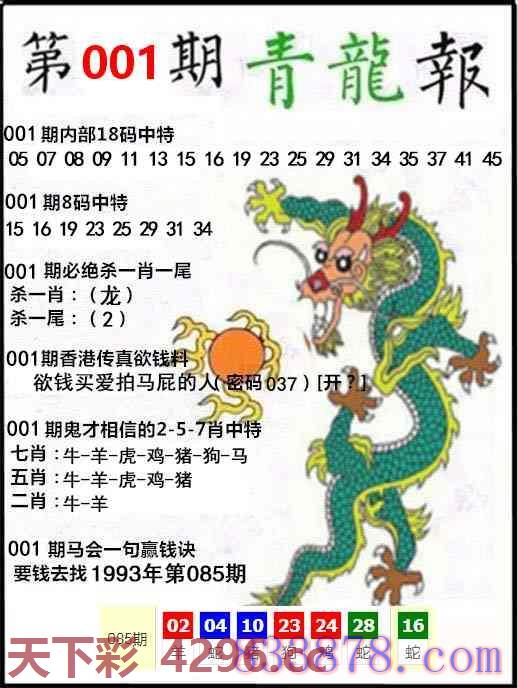 第001期青龍報
001期内部18码中特
05 07 08 09 11 13 15 16 19 23 25 29 31 34 35 37 41 45
001期8码中特
15 16 19 23 25 29 31 34
001 期必绝杀一肖一尾
杀一肖：（龙）
杀一尾：（2）
001期香港传真欲钱料
欲钱买爱拍马屁的人（密码037）[开？]
001期鬼才相信的2-5-7肖中特
七肖：牛-羊-虎-鸡-猪-狗-马
五肖：牛-羊-虎-鸡-猪
二肖：牛-羊
001 期马会一句赢钱诀
要钱去找1993年第085期
085期 02 04 10 23 24 28 16
羊 蛇 猪 狗 鸡 蛇 蛇
天下彩 4296.cc